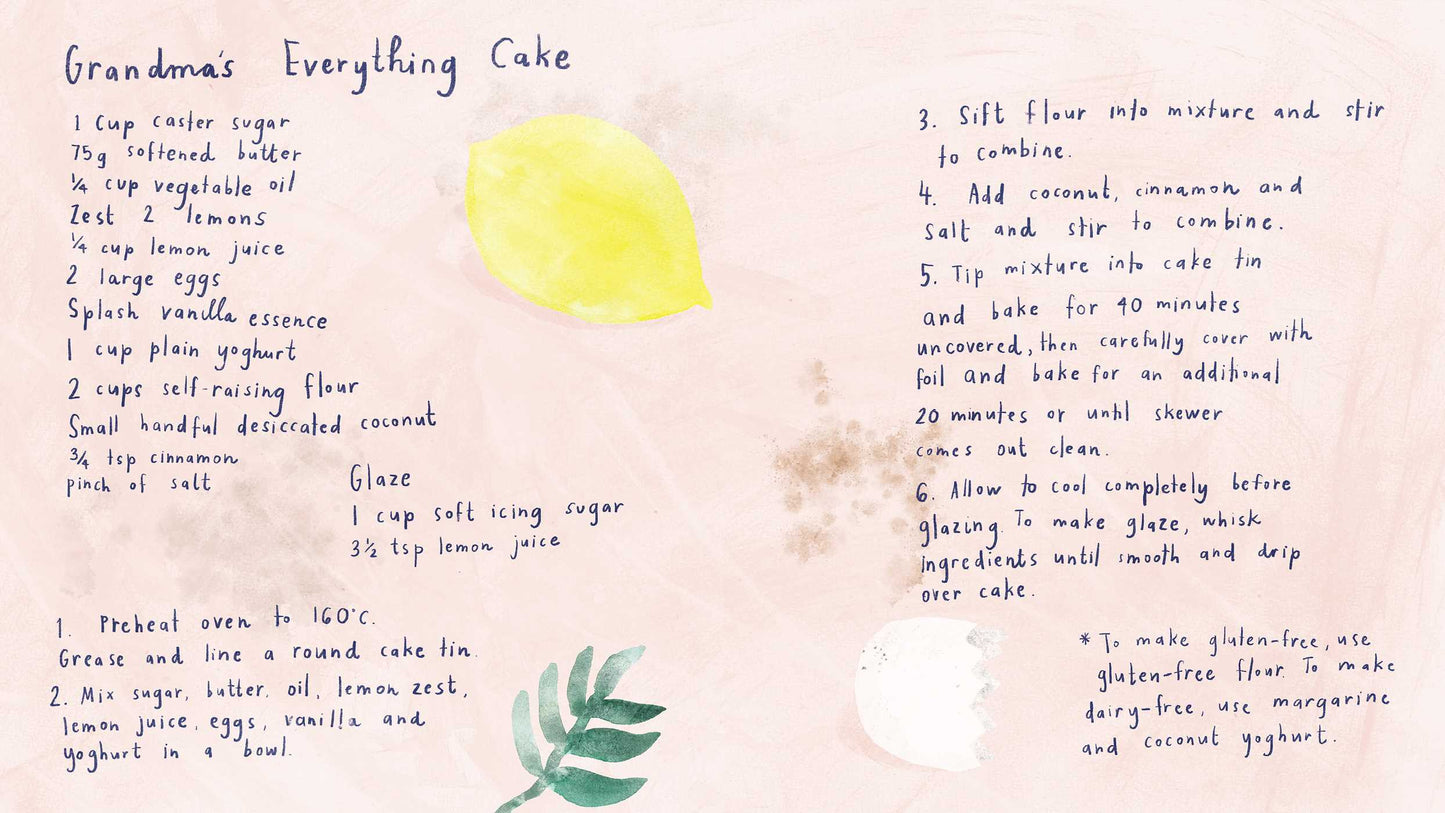 Grandma's Everything Cake
1 Cup caster sugar
75g softened butter
¼ cup vegetable oil
Zest 2 lemons
¼ cup lemon juice
2 large eggs
Splash vanilla essence
1 cup plain yoghurt
2 cups self-raising flour
Small handful desiccated coconut
¾ tsp cinnamon
pinch of salt
Glaze
1 cup soft icing sugar
3½ tsp lemon juice
1. Preheat oven to 160°C.
Grease and line a round cake tin.
2. Mix sugar, butter, oil, lemon zest,
lemon juice, eggs, vanilla and
yoghurt in a bowl.
3. Sift flour into mixture and stir
to combine.
4. Add coconut, cinnamon and
salt and stir to combine.
5. Tip mixture into cake tin
and bake for 40 minutes
uncovered, then carefully cover with
foil and bake for an additional
20 minutes or until skewer
comes out clean.
6. Allow to cool completely before
glazing. To make glaze, whisk
ingredients until smooth and drip
over cake.
* To make gluten-free, use
gluten-free flour. To make
dairy-free, use margarine
and coconut yoghurt.